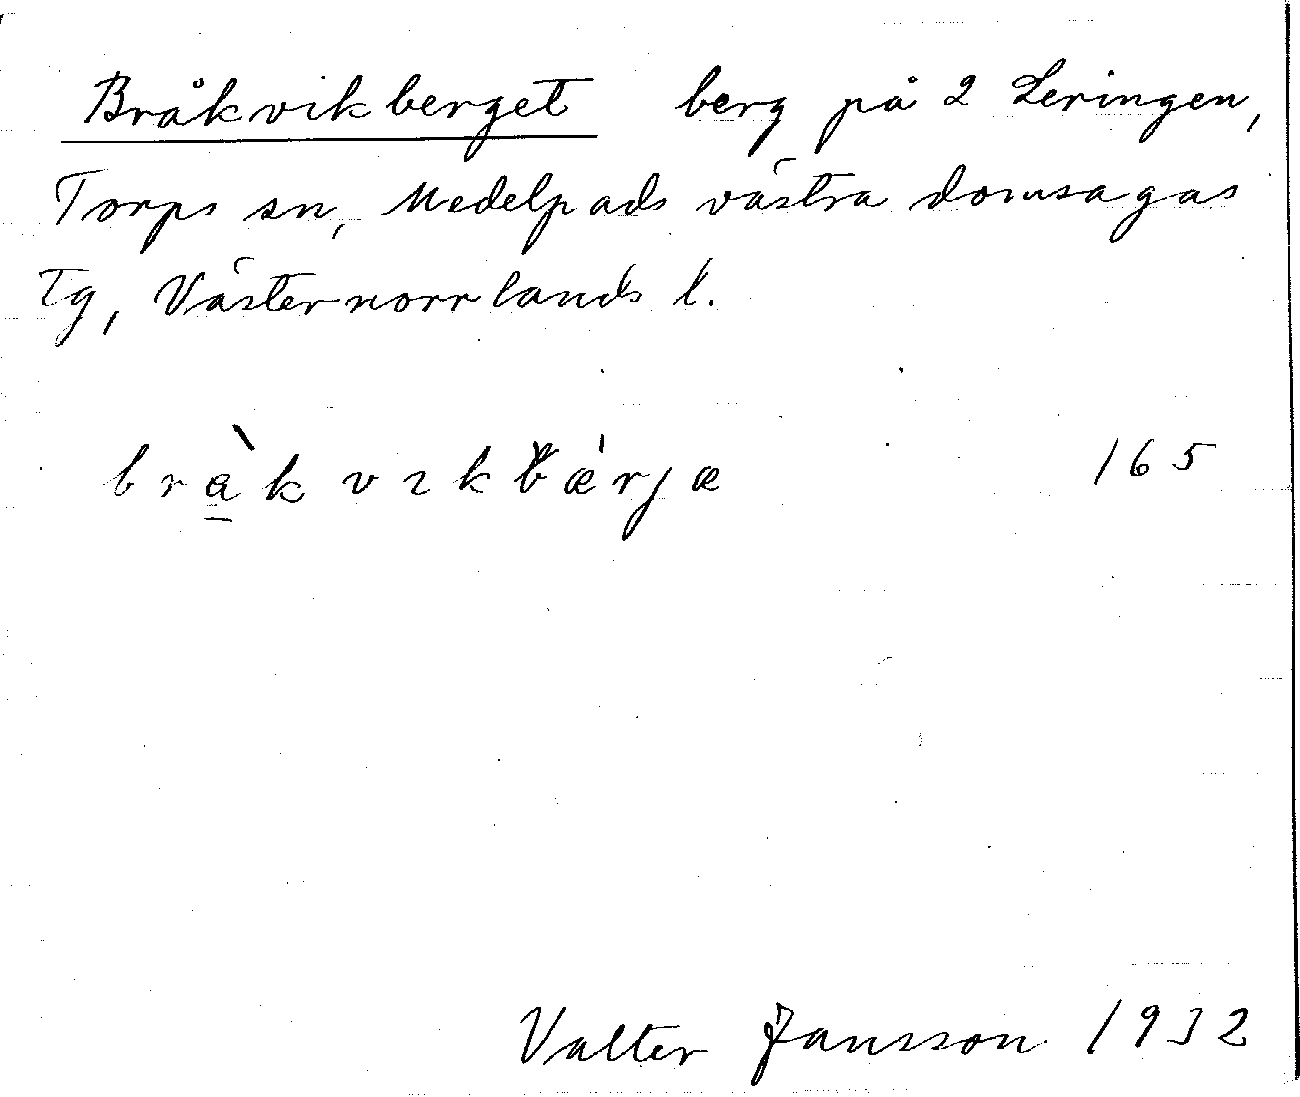 Bråkvikberget berg på 2 Leringen,
Torps sn, Medelpads västra domsagas
tg, Västernorrlands l.
brà̲kvikbǽrjæ 165
Valter Jansson 1932